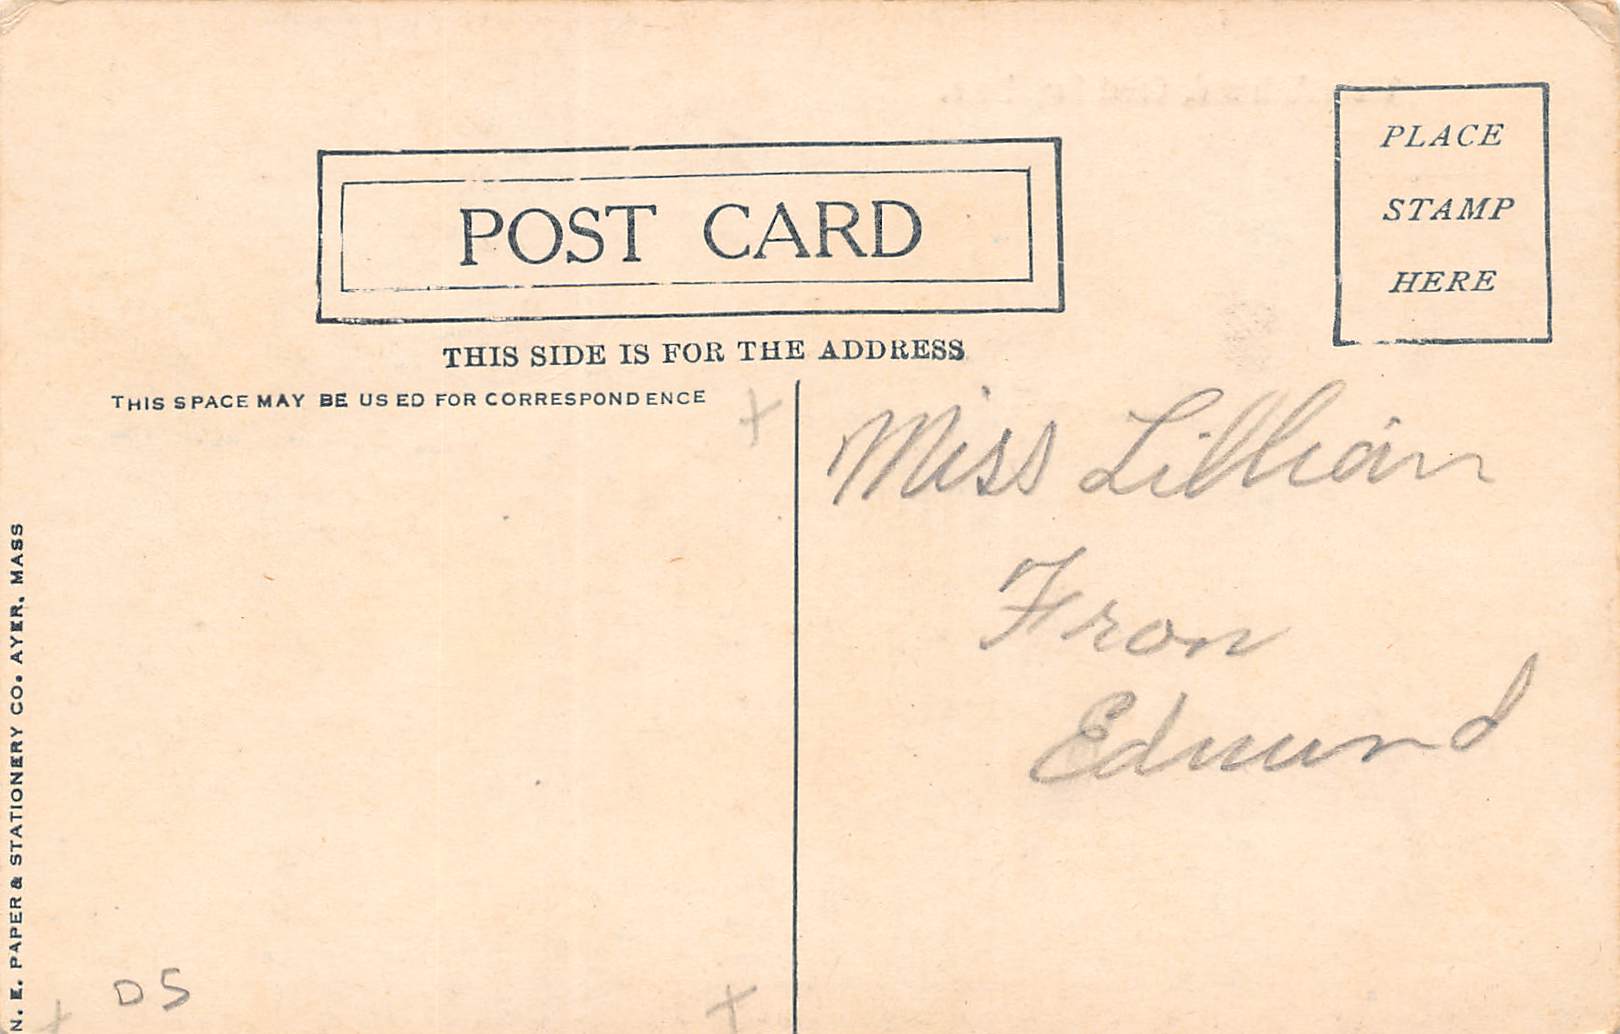 PLACE
STAMP
HERE
POST CARD
THIS SIDE IS FOR THE ADDRESS
THIS SPACE MAY BE USED FOR CORRESPONDENCE
Miss Lillian
Fron
Edmund
N. E. PAPER & STATIONERY CO. AYER, MASS
D5